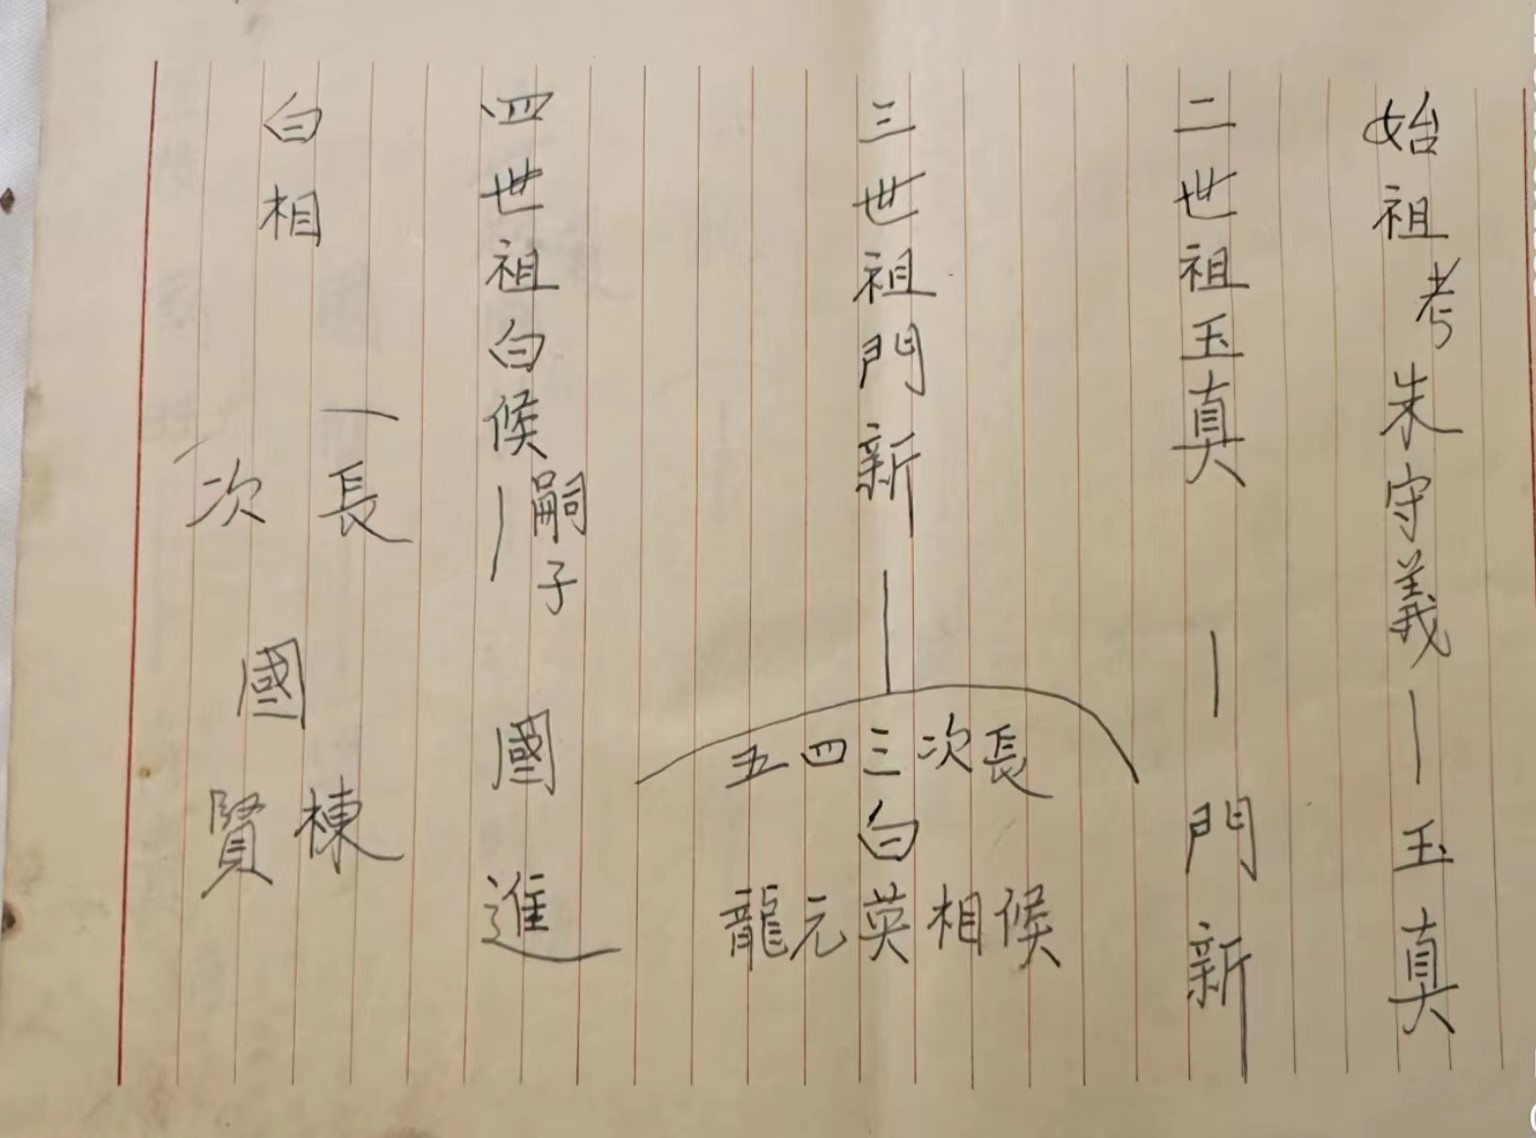 始祖考朱守義—玉真
二世祖玉真—門新
三世祖門新—
長次三四五
白
候相英元龍
四世祖白候—嗣子國進
白相
長國棟
次國賢